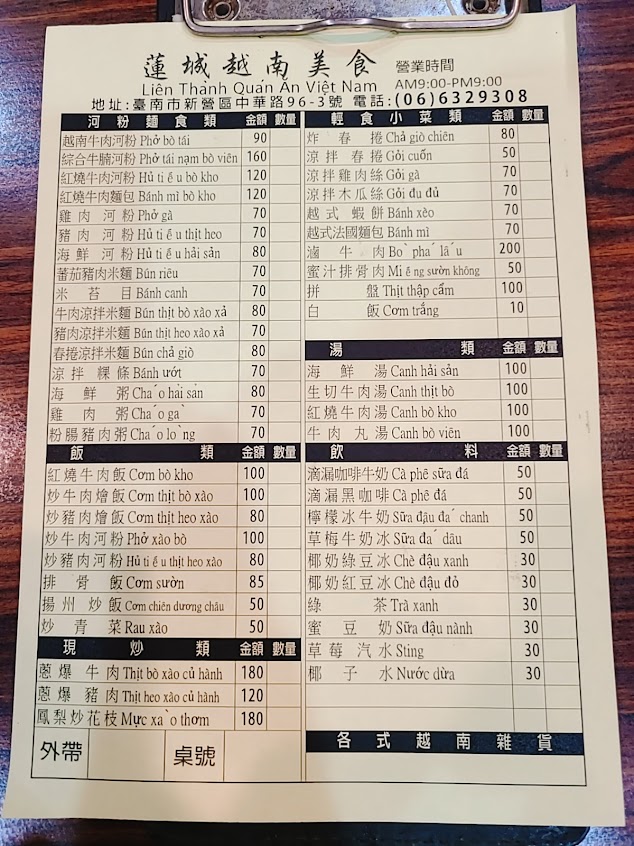 蓮城越南美食 營業時間
Liên Thành Quán Ăn Việt Nam AM9:00-PM9:00
地址:臺南市新營區中華路96-3號 電話:(06)6329308
河粉麵食類 金額 數量
越南牛肉河粉 Phở bò tái 90
綜合牛腩河粉 Phở tái nạm bò viên 160
紅燒牛肉河粉 Hủ tiếu bò kho 120
紅燒牛肉麵包 Bánh mì bò kho 120
雞肉河粉 Phở gà 70
豬肉河粉 Hủ tiếu thịt heo 70
海鮮河粉 Hủ tiếu hải sản 80
蕃茄豬肉米麵 Bún riêu 70
米苔目 Bánh canh 70
牛肉涼拌米麵 Bún thịt bò xào xả 80
豬肉涼拌米麵 Bún thịt heo xào xả 70
春捲涼拌米麵 Bún chả giò 80
涼拌粿條 Bánh ướt 70
海鮮粥 Cháo hải sản 80
雞肉粥 Cháo gà 70
粉腸豬肉粥 Cháo lòng 70
飯類 金額 數量
紅燒牛肉飯 Cơm bò kho 100
炒牛肉燴飯 Cơm thịt bò xào 100
炒豬肉燴飯 Cơm thịt heo xào 80
炒牛肉河粉 Phở xào bò 100
炒豬肉河粉 Hủ tiếu thịt heo xào 80
排骨飯 Cơm sườn 85
揚州炒飯 Cơm chiên dương châu 50
炒青菜 Rau xào 50
現炒類 金額 數量
蔥爆牛肉 Thịt bò xào củ hành 180
蔥爆豬肉 Thịt heo xào củ hành 120
鳳梨炒花枝 Mực xào thơm 180
外帶 桌號
輕食小菜類 金額 數量
炸春捲 Chả giò chiên 80
涼拌春捲 Gỏi cuốn 50
涼拌雞肉絲 Gỏi gà 70
涼拌木瓜絲 Gỏi đu đủ 70
越式蝦餅 Bánh xèo 70
越式法國麵包 Bánh mì 70
滷牛肉 Bò phá lấu 200
蜜汁排骨肉 Miếng sườn không 50
拼盤 Thịt thập cẩm 100
白飯 Cơm trắng 10
湯類 金額 數量
海鮮湯 Canh hải sản 100
生切牛肉湯 Canh thịt bò 100
紅燒牛肉湯 Canh bò kho 100
牛肉丸湯 Canh bò viên 100
飲料 金額 數量
滴漏咖啡牛奶 Cà phê sữa đá 50
滴漏黑咖啡 Cà phê đá 50
檸檬冰牛奶 Sữa đậu đá chanh 50
草莓牛奶冰 Sữa đá dâu 50
椰奶綠豆冰 Chè đậu xanh 30
椰奶紅豆冰 Chè đậu đỏ 30
綠茶 Trà xanh 30
蜜豆奶 Sữa đậu nành 30
草莓汽水 Sting 30
椰子水 Nước dừa 30
各式越南雜貨